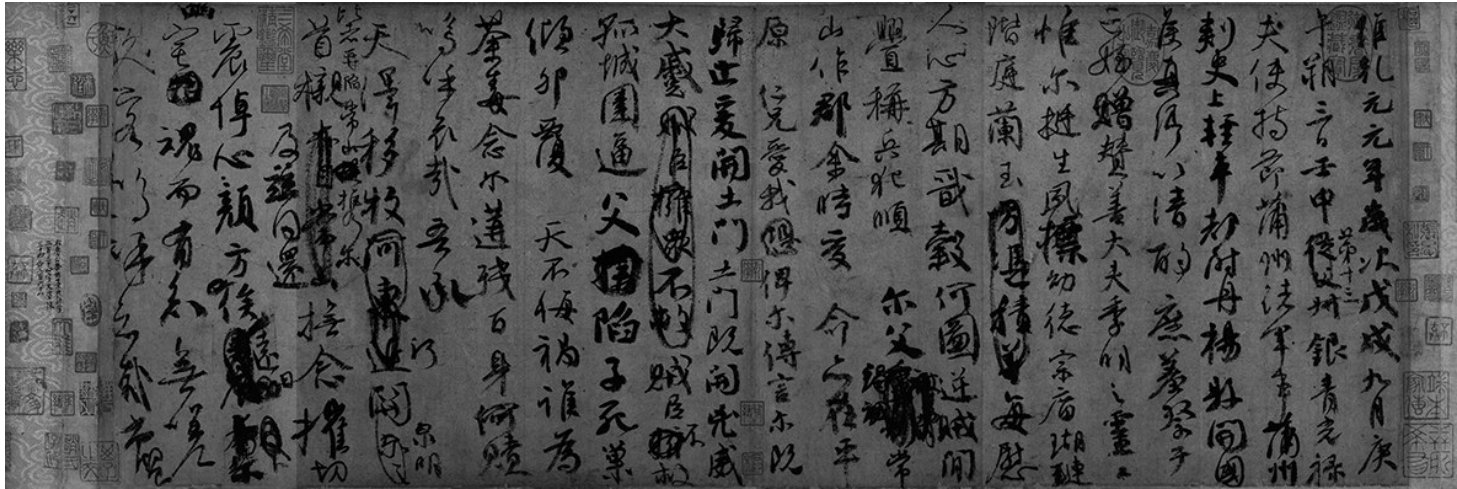 維乾元元年歲次戊戌九月庚
午朔三日壬申第十三從父銀青光祿
夫使持節蒲州諸軍事蒲州
刺史上輕車都尉丹楊縣開國
侯真卿以清酌庶羞祭于
亡姪贈贊善大夫季明之靈曰
惟爾挺生夙標幼德宗廟瑚璉
階庭蘭玉方憑積善每慰
人心方期戩穀何圖逆賊間
釁稱兵犯順爾父竭誠常
山作郡余時受命亦在平
原仁兄愛我俾爾傳言爾既
歸止爰開土門土門既開兇威
大蹙賊臣擁眾不救賊臣不救
孤城圍逼父陷子死巢
傾卵覆天不悔禍誰為
荼毒念爾遘殘百身何贖
嗚呼哀哉吾承
天澤移牧河東近河關泉明
比者再陷常山攜爾
首櫬及茲同還撫念摧切
震悼心顏方俟遠日
宅魂而有知無嗟
久客嗚呼哀哉尚饗